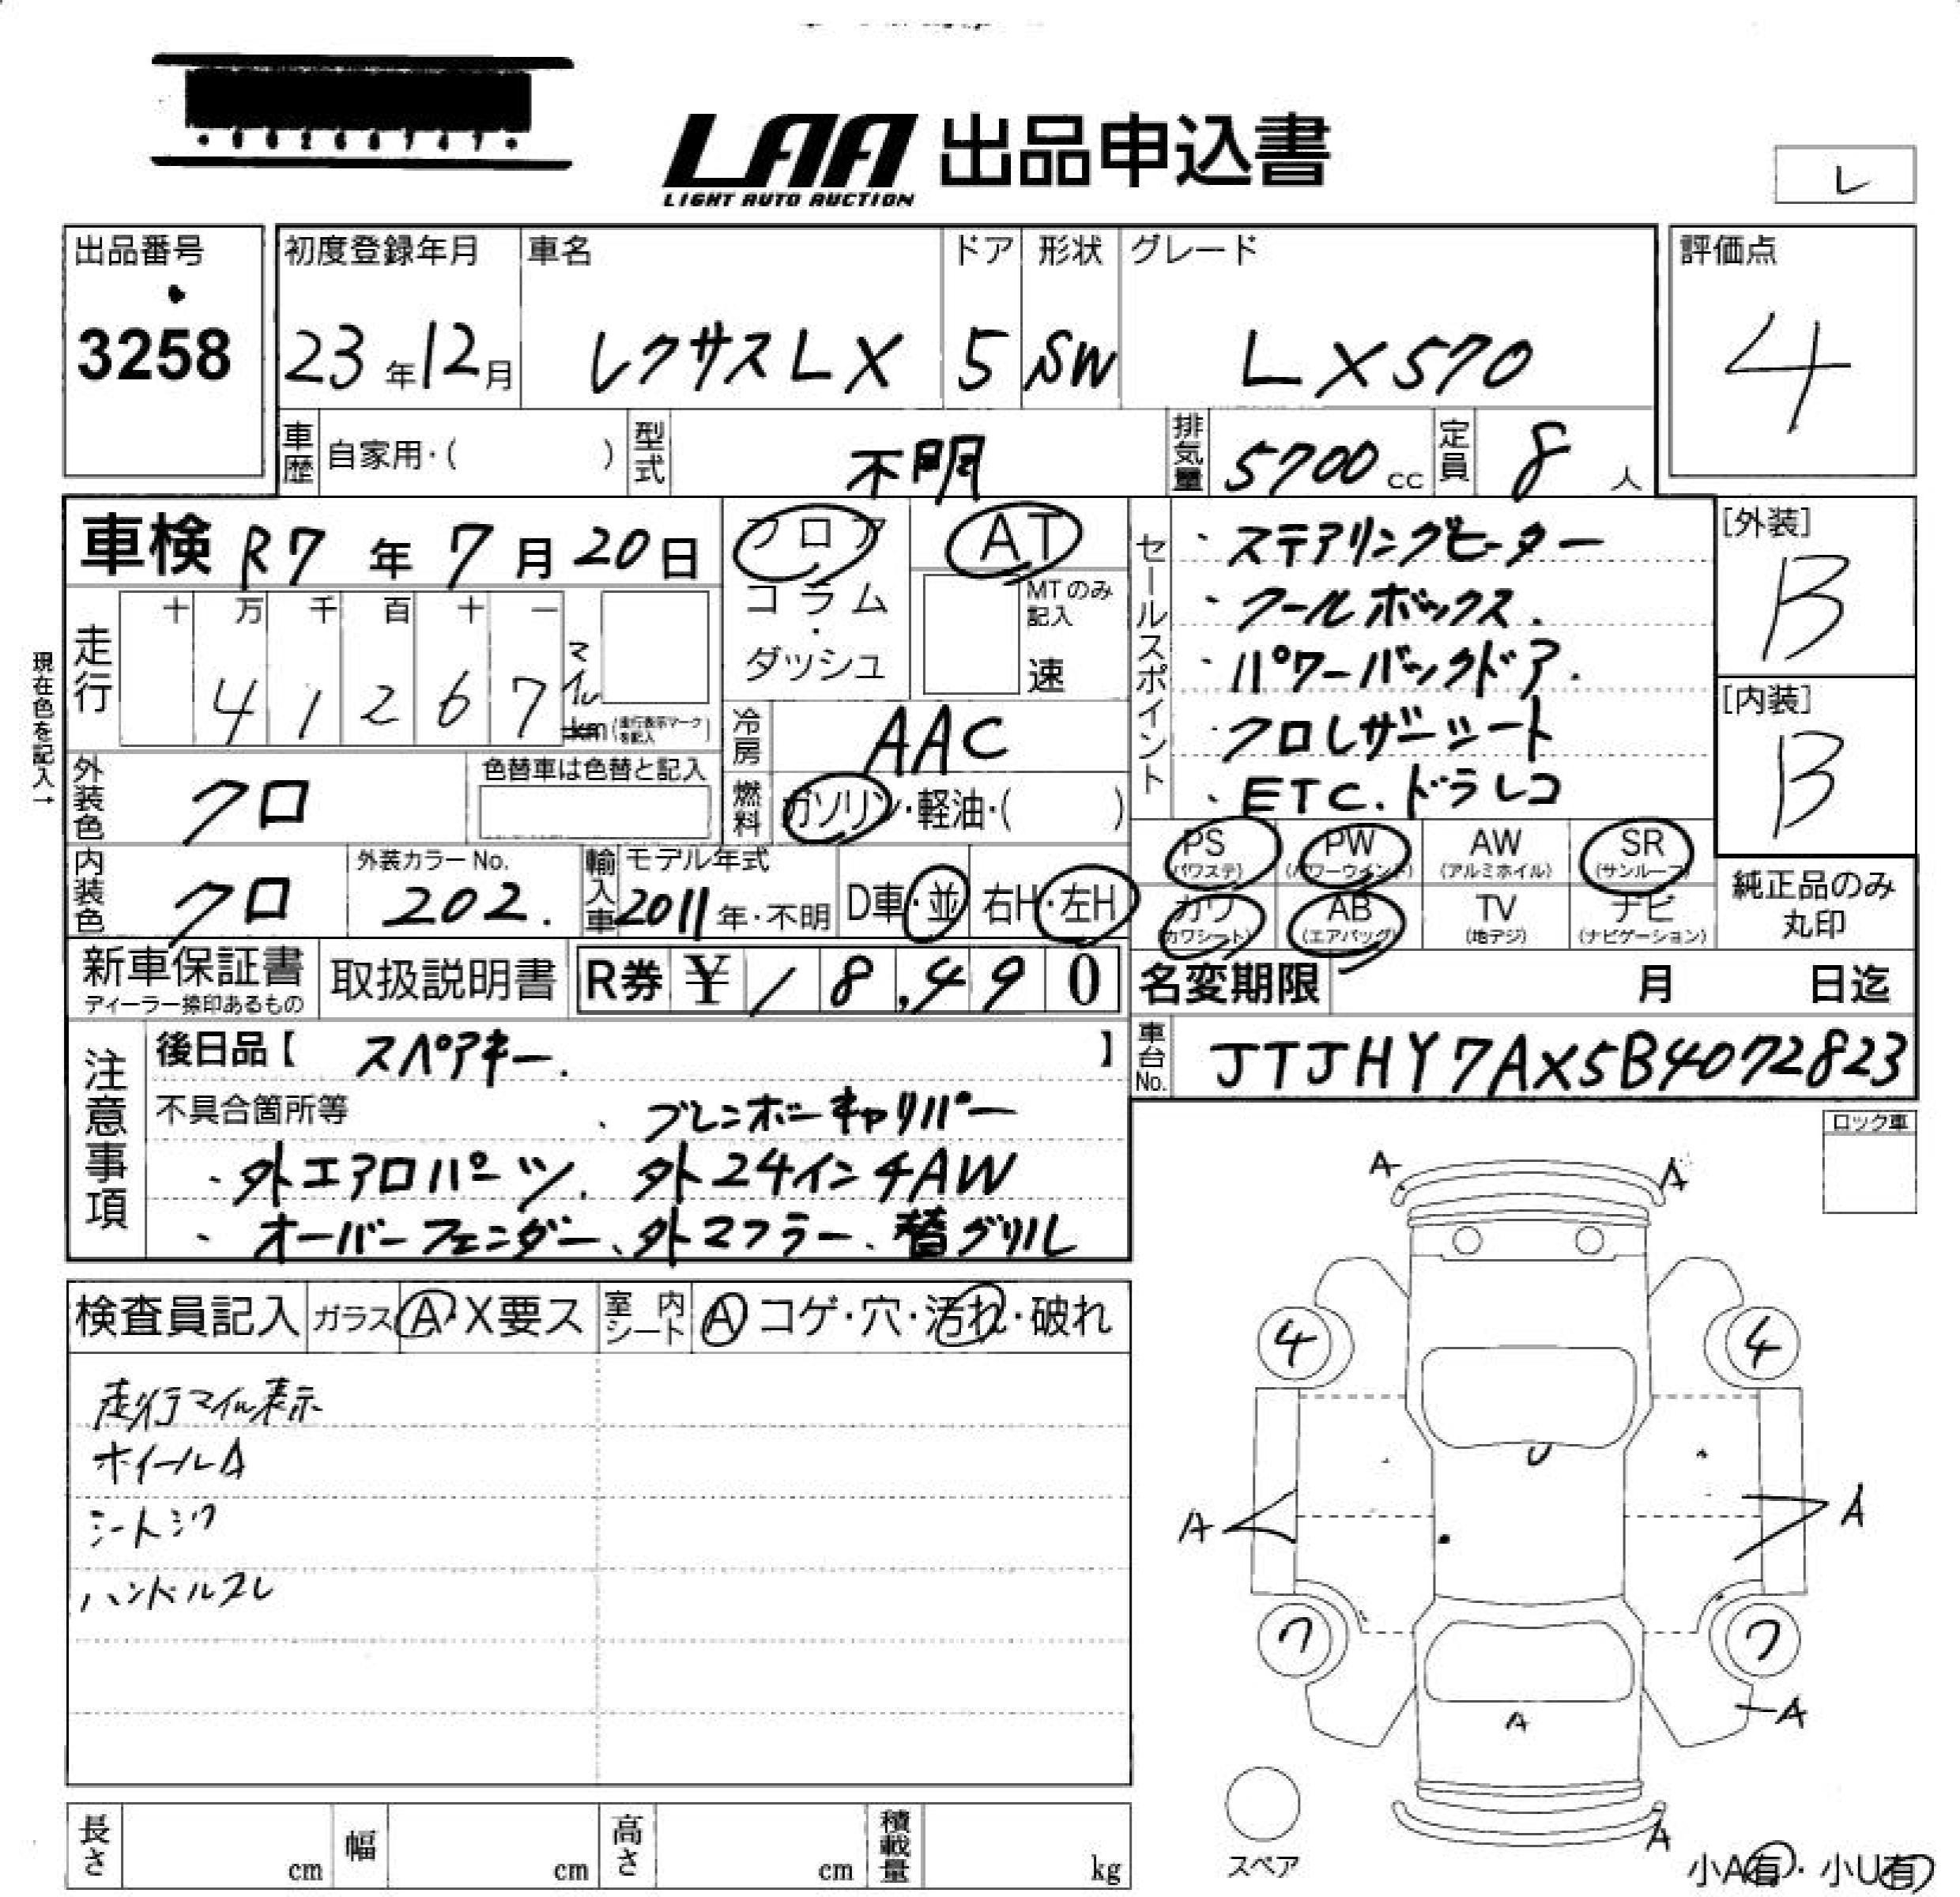 LAA 出品申込書
LIGHT AUTO AUCTION
レ
出品番号 初度登録年月 車名 ドア 形状 グレード 評価点
3258 23年12月 レクサスLX 5 SW LX570 4
車歴 自家用・( ) 型式 不明 排気量 5700cc 定員 8人
車検 R7年7月20日 フロア AT
コラム・ダッシュ MTのみ記入 速
現在色を記入→
走行 十万千百十一
41267 マイル km (走行表示マークを記入)
冷房 AAC
外装色 クロ 色替車は色替と記入
燃料 ガソリン・軽油・( )
内装色 クロ 外装カラーNo. 202. 輸入車 モデル年式 2011年・不明 D車・並 右H・左H
セールスポイント
・ステアリングヒーター
・クールボックス.
・パワーバックドア.
・クロレザーシート
・ETC.ドラレコ
[外装] B
[内装] B
PS (パワステ) PW (パワーウインド) AW (アルミホイル) SR (サンルーフ)
カワ (カワシート) AB (エアバッグ) TV (地デジ) ナビ (ナビゲーション)
純正品のみ
丸印
新車保証書 ディーラー捺印あるもの 取扱説明書 R券 ¥18,490 名変期限 月 日迄
車台No. JTJHY7AX5B4072823
注意事項
後日品【 スペアキー. 】
不具合箇所等 、ブレンボーキャリパー
・外エアロパーツ、外24インチAW
・オーバーフェンダー、外マフラー、替グリル
検査員記入 ガラス A・X要ス 室内シート A コゲ・穴・汚れ・破れ
走行マイル表示
ホイールA
シートシワ
ハンドルスレ
ロック車
A A
4 4
U
A A
7 7
A A
A
スペア
小A有・小U有
長さ cm 幅 cm 高さ cm 積載量 kg